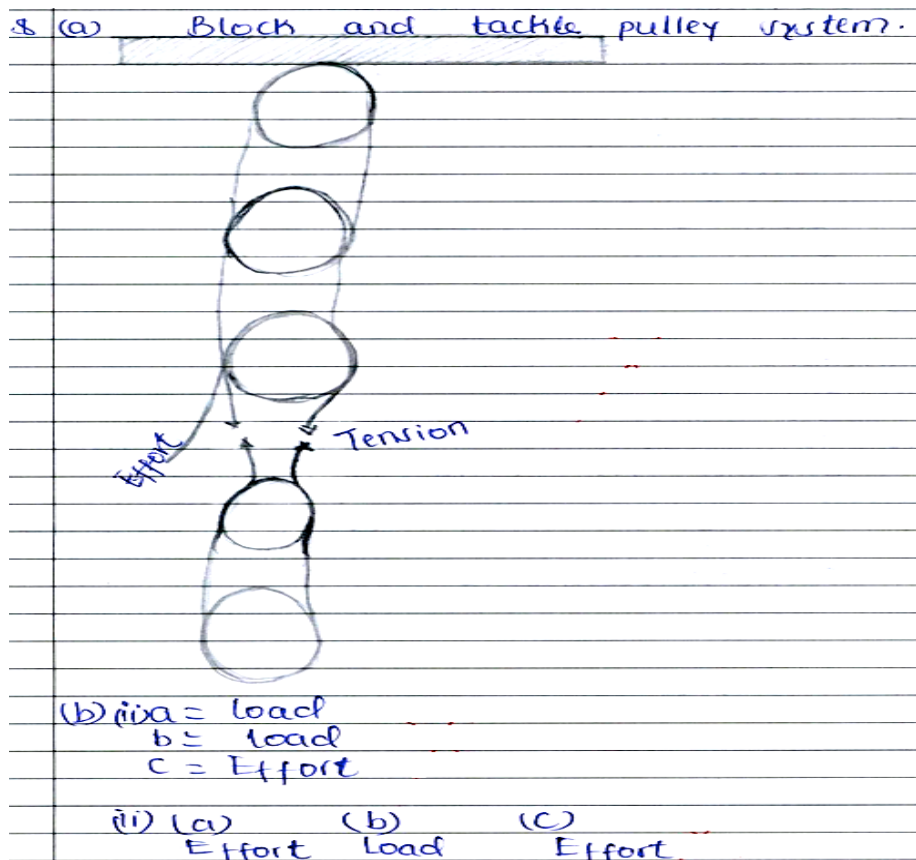 8 (a) Block and tackle pulley system.
Tension
Effort
(b) (i) a = load
b = load
c = Effort
(ii) (a) (b) (c)
Effort Load Effort